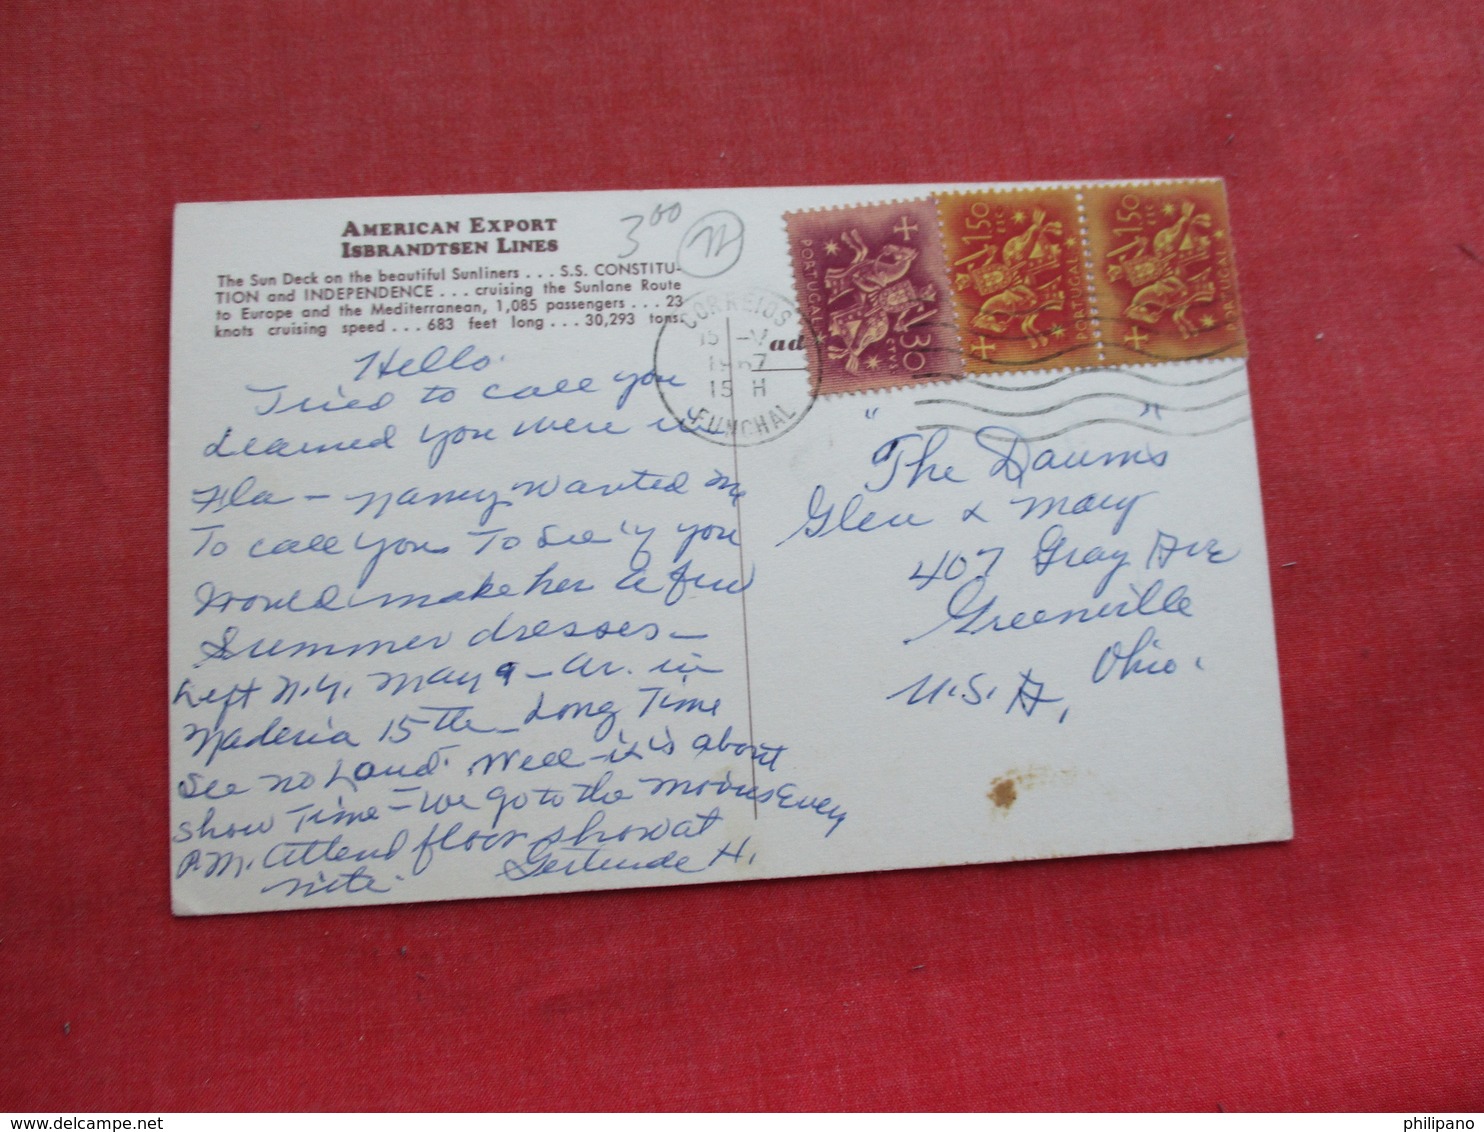 AMERICAN EXPORT
ISBRANDTSEN LINES
The Sun Deck on the beautiful Sunliners . . . S.S. CONSTITU-
TION and INDEPENDENCE . . . cruising the Sunlane Route
to Europe and the Mediterranean, 1,085 passengers . . . 23
knots cruising speed . . . 683 feet long . . . 30,293 tons.
3.00
Hello.
Tried to call you
Learned you were in
Fla - Nancy wanted me
To call you To see if you
would make her a few
Summer dresses -
Left N.Y. May 9 - Ar. in
Maderia 15th - Long Time
See no Land. Well - it is about
show Time - We go to the movies Every
P.M. Attend floor show at
nite.
Gertrude H.
CORREIOS
15
1967
15 H
FUNCHAL
ad
PORTUGAL
CTVS 30
1$50 ESC
PORTUGAL
1$50 ESC
PORTUGAL
"The Daums"
Glen & Mary
407 Gray Ave
Greenville
Ohio.
U.S.A,
delcampe.net
philipano